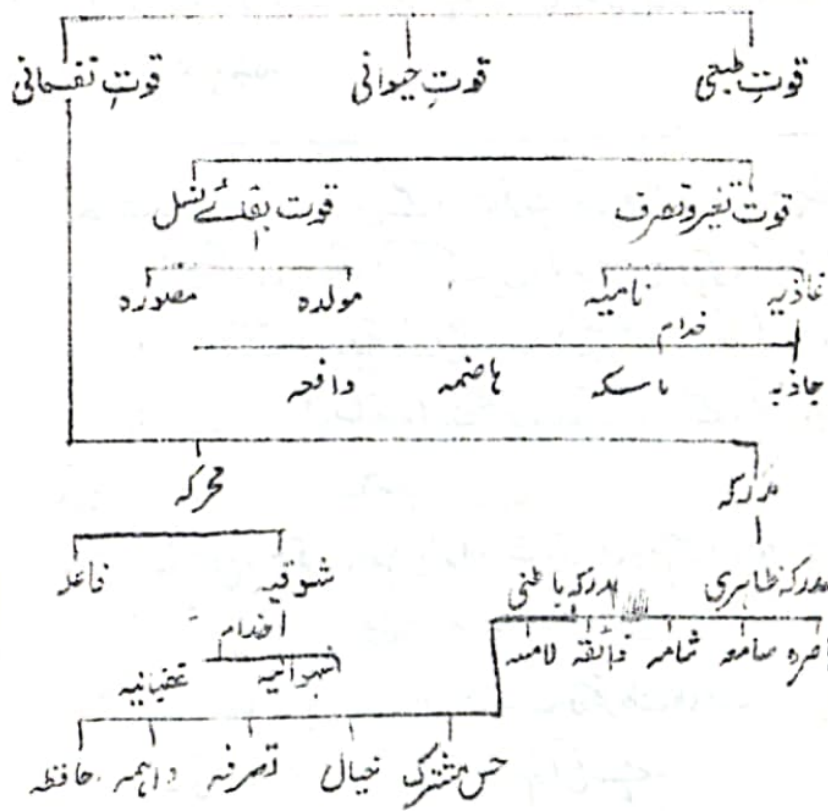 قوتِ طبعی قوتِ حیوانی قوتِ نفسانی
قوت تغیر و تصرف قوت بقائے نسل
غاذیہ نامیہ مولدہ مصورہ
خدام
جاذبہ ماسکہ ہاضمہ دافعہ
مدرکہ محرکہ
مدرکہ ظاہری مدرکہ باطنی شوقیہ فاعلہ
باصرہ سامعہ شامہ ذائقہ لامسہ اقدام
شہوانیہ غضبانیہ
حس مشترک خیال تصرفہ واہمہ حافظہ